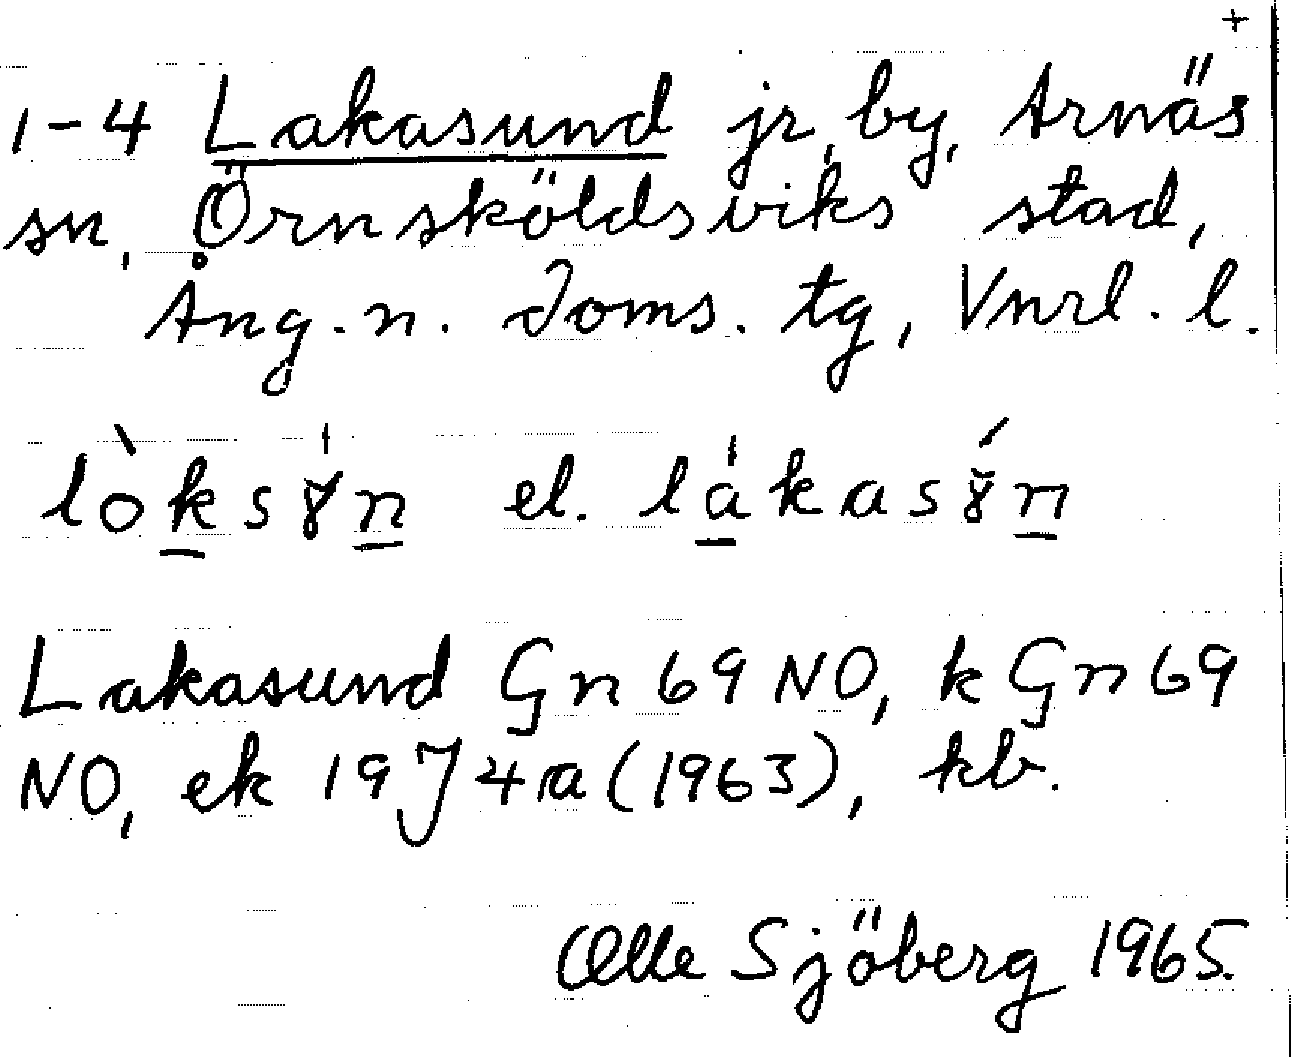 +
1-4 Lakasund jr, by, Arnäs
sn, Örnsköldsviks stad,
Ång. n. Doms. tg, Vnrl. l.
lòksɤ́n el. lákasɤ́n
Lakasund Gn 69 NO, k Gn 69
NO, ek 19J4a (1963), kb.
Olle Sjöberg 1965.